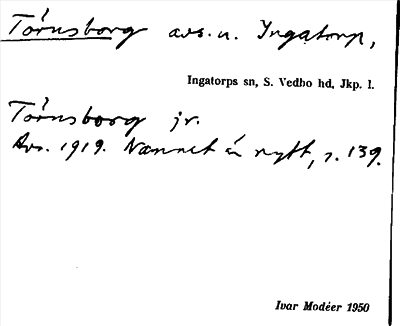 Törnsborg avs. u. Ingatorp,
Ingatorps sn, S. Vedbo hd, Jkp. l.
Törnsborg jr.
Avs. 1919. Namnet är nytt, s. 139.
Ivar Modéer 1950